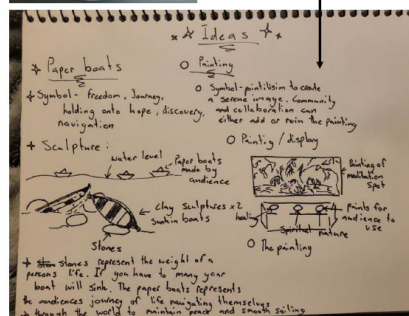 Ideas
Paper boats
Symbol - freedom, Journey,
holding onto hope, discovery,
navigation
Sculpture:
Water level
Paper boats
made by
audience
clay sculptures x2
Sunkin boats
Stones
stones represent the weight of a
persons life. If you have to many your
boat will sink. The paper boats represents
the audiences journey of life navigating themselves
through the world to maintain peace and smooth sailing
Painting
Symbol - pointilisim to create
a serene image. Community
and collaboration can
either add or ruin the painting
Painting / display
Painting of
meditation
spot
paints for
audience to
use
healing
Spiritual
nature
The painting